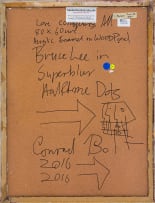 Love conquers All
80 x 60 cm
Acrylic Enamel on Wood Panel
Bruce Lee in
Superblur
Halftone Dots
Conrad Bo
2016
2016